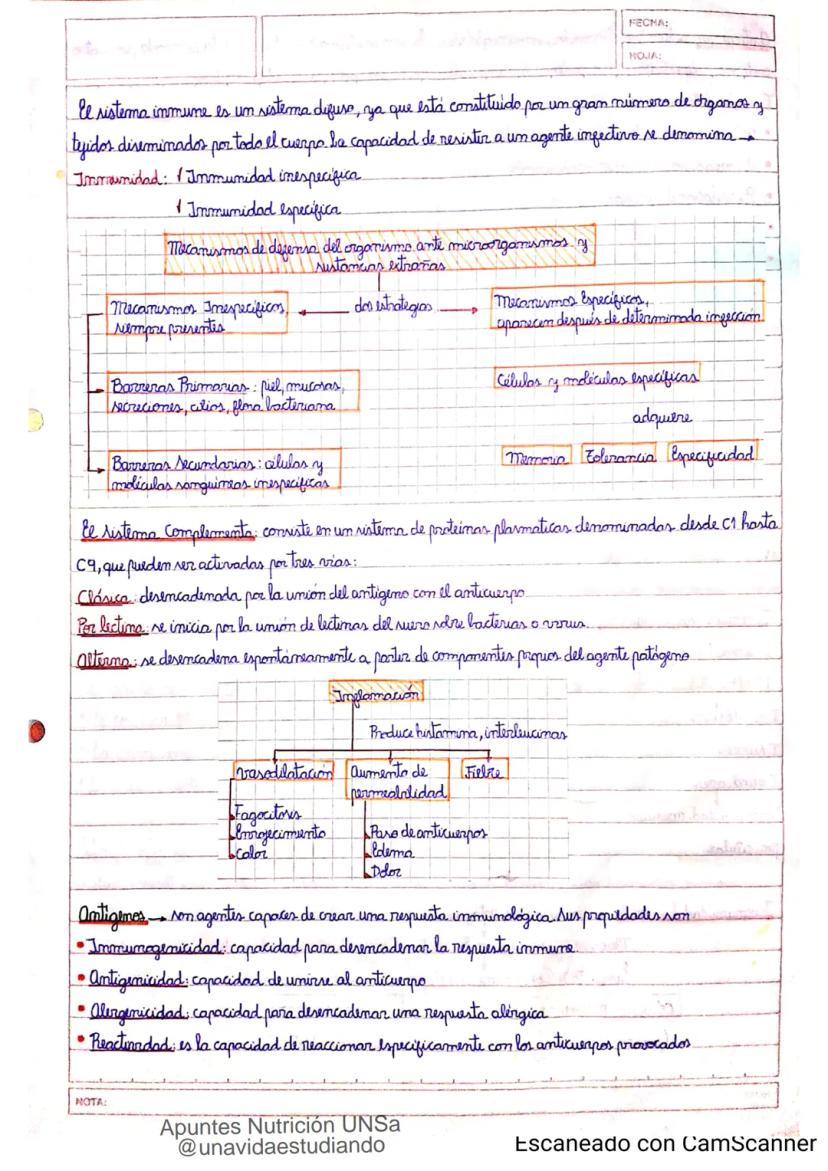 FECHA:
HOJA:
El sistema inmune es un sistema difuso, ya que está constituido por un gran número de órganos y
tejidos diseminados por todo el cuerpo. La capacidad de resistir a un agente infectivo se denomina →
Inmunidad: √ Inmunidad inespecífica
√ Inmunidad específica
Mecanismos de defensa del organismo ante microorganismos y
sustancias extrañas
Mecanismos Inespecíficos,
siempre presentes
dos estrategias
Mecanismos Específicos,
aparecen después de determinada infección
Barreras Primarias: piel, mucosas,
secreciones, cilios, flora bacteriana
Células y moléculas específicas
adquiere
Memoria Tolerancia Especificidad
Barreras Secundarias: células y
moléculas sanguíneas inespecíficas
El sistema Complemento: consiste en un sistema de proteínas plasmaticas denominadas desde C1 hasta
C9, que pueden ser activadas por tres vías:
Clásica: desencadenada por la unión del antígeno con el anticuerpo
Por lectina: se inicia por la unión de lectinas del suero sobre bacterias o virus.
Alterna: se desencadena espontáneamente a partir de componentes propios del agente patógeno
Inflamación
Produce histamina, interleucinas
Vasodilatación Aumento de Fiebre
permeabilidad
Fagocitosis
Enrojecimiento
Calor
Paso de anticuerpos
Edema
Dolor
Antígenos → son agentes capaces de crear una respuesta inmunológica. Sus propiedades son
• Inmunogenicidad: capacidad para desencadenar la respuesta inmune.
• Antigenicidad: capacidad de unirse al anticuerpo
• Alergenicidad: capacidad para desencadenar una respuesta alérgica
• Reactividad: es la capacidad de reaccionar específicamente con los anticuerpos provocados
NOTA:
Apuntes Nutrición UNSa
@unavidaestudiando
Escaneado con CamScanner